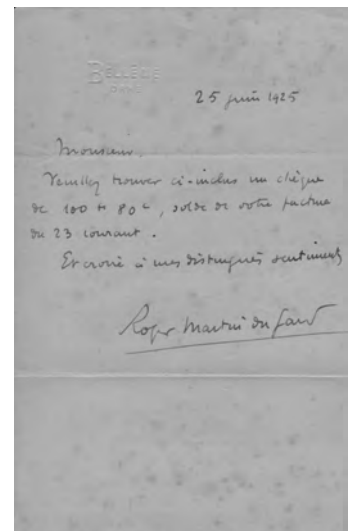 BELLÊME
ORNE
25 juin 1925
Monsieur,
Veuillez trouver ci-inclus un chèque
de 100 frs 80 c, solde de votre facture
du 23 courant.
Et croire à mes distingués sentiments
Roger Martin du Gard